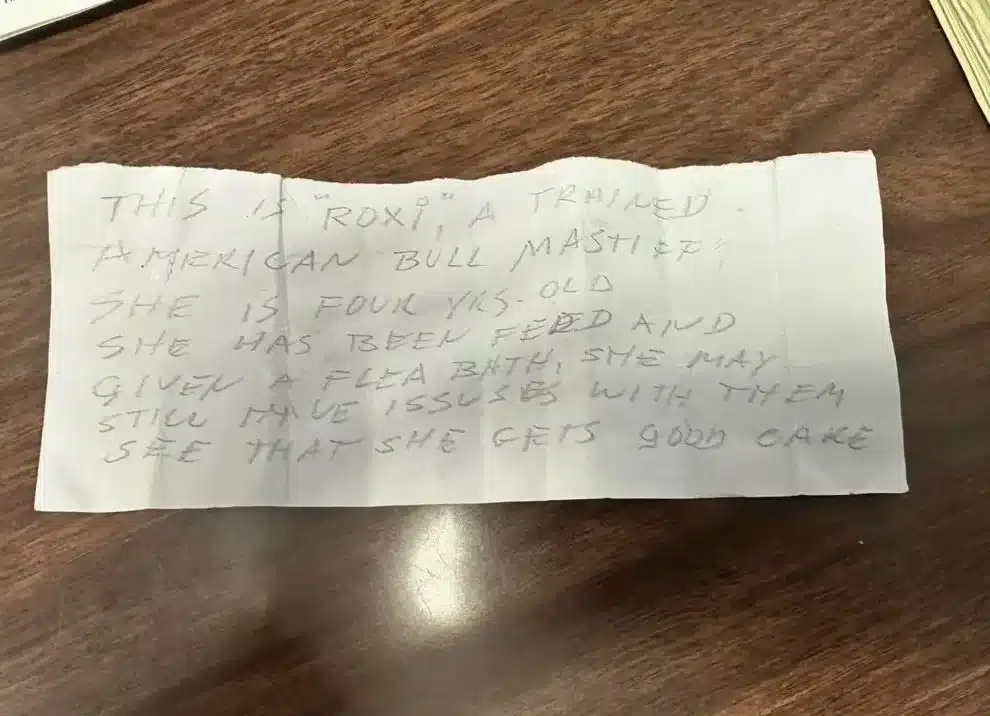 THIS IS "ROXI", A TRAINED
AMERICAN BULL MASTIFF,
SHE IS FOUR YRS. OLD
SHE HAS BEEN FEED AND
GIVEN A FLEA BATH, SHE MAY
STILL HAVE ISSUSES WITH THEM
SEE THAT SHE GETS GOOD CARE